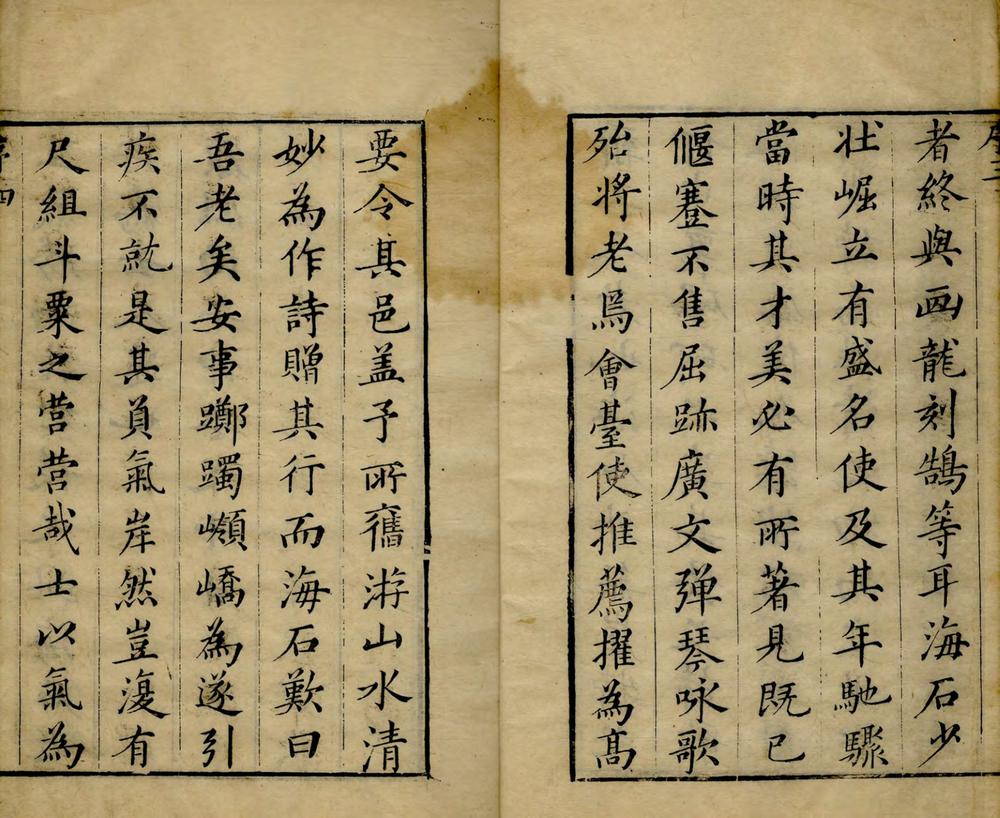 序三
者終與画龍刻鵠等耳海石少
壮崛立有盛名使及其年馳驟
當時其才美必有所著見既已
偃蹇不售屈跡廣文弾琴咏歌
殆将老焉會臺使推薦擢為高
要令其邑盖予所舊游山水清
妙為作詩贈其行而海石歎曰
吾老矣安事躑躅嶺嶠為遂引
疾不就是其負氣岸然豈復有
尺組斗粟之営営哉士以氣為
序四